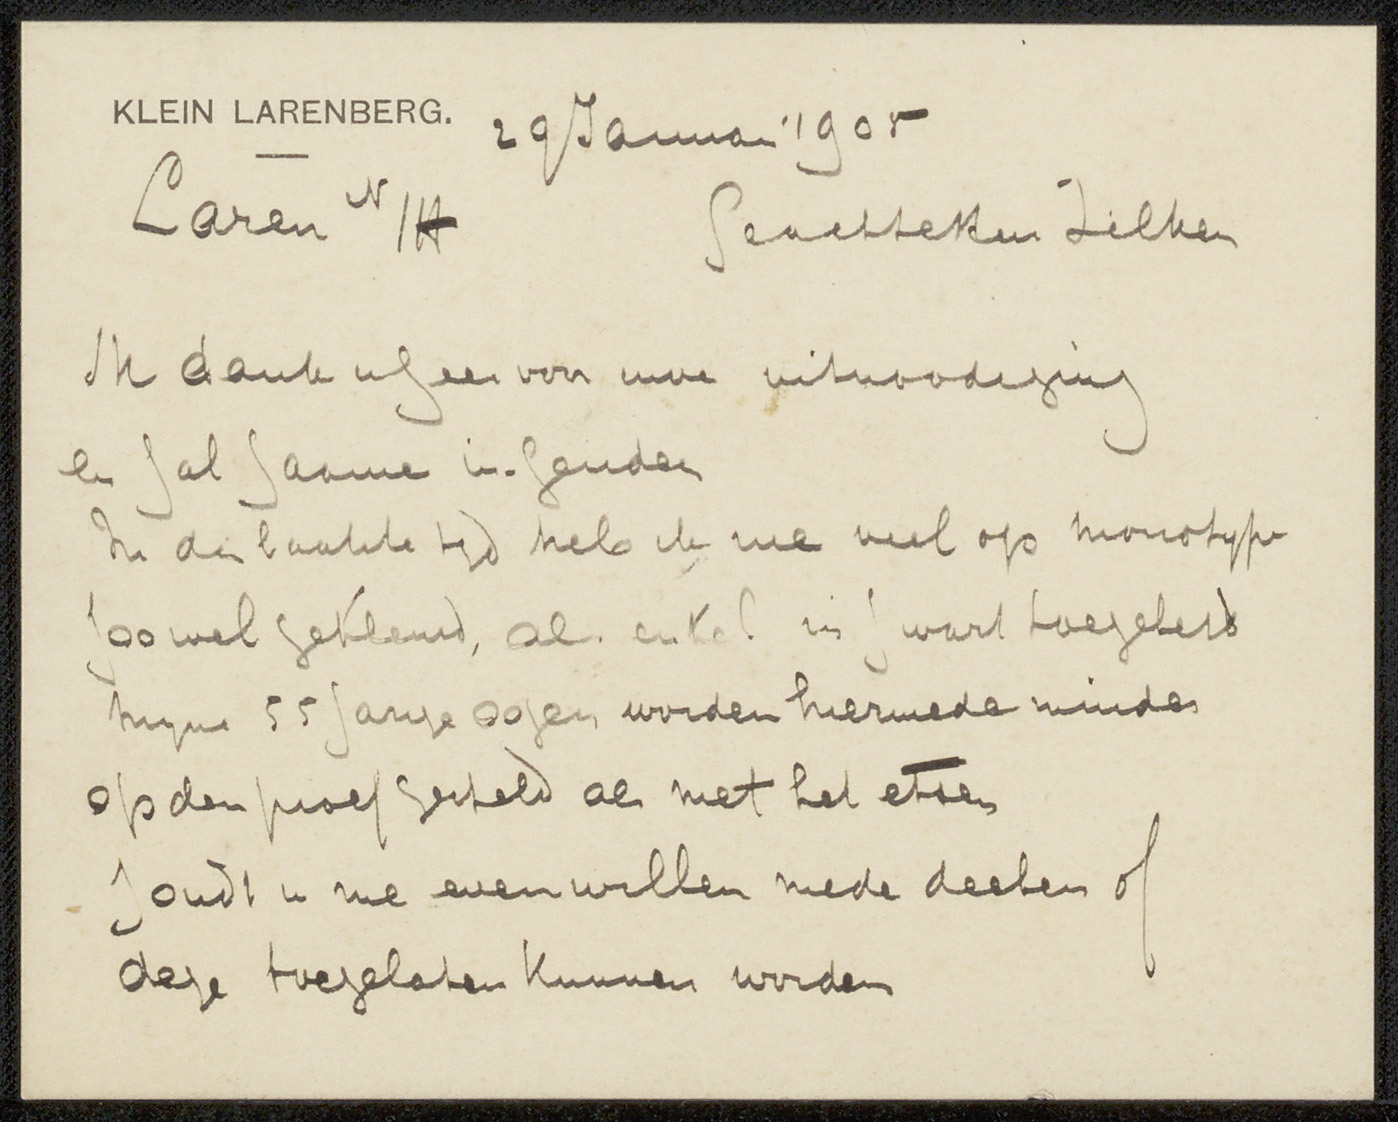 KLEIN LARENBERG.
29 Januari 1905
Laren N/H
Geachte Heer Zilken
Ik dank u zeer voor uwe uitnoodiging
en zal gaarne in-zenden
In den laatste tijd heb ik me veel op monotype
zoowel gekleurd, als enkel in zwart toegelegd
mijne 55 jarige oogen worden hiermede minder
op den proef gesteld als met het etsen
zoudt u me even willen mede deelen of
deze toegelaten kunnen worden